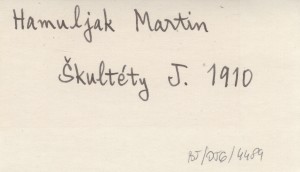 Hamuljak Martin
Škultéty J. 1910
BJ/OJG/4489